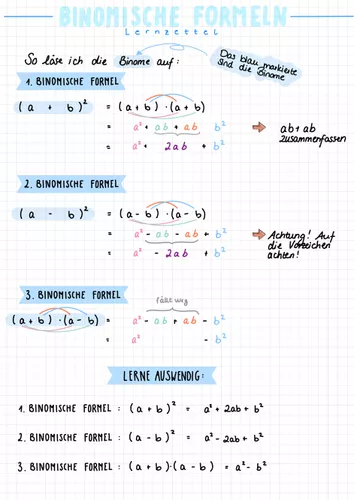 BINOMISCHE FORMELN
Lernzettel
So löse ich die Binome auf:
Das blau markierte
sind die Binome
1. BINOMISCHE FORMEL
(a + b)² = (a+b)·(a+b)
= a² + ab + ab + b² ⇒ ab+ab
zusammenfassen
= a² + 2ab + b²
2. BINOMISCHE FORMEL
(a - b)² = (a-b)·(a-b)
= a² - ab - ab + b² ⇒ Achtung! Auf
die Vorzeichen
achten!
= a² - 2ab + b²
3. BINOMISCHE FORMEL
fällt weg
(a+b)·(a-b) = a² - ab + ab - b²
= a² - b²
LERNE AUSWENDIG:
1. BINOMISCHE FORMEL : (a + b)² = a² + 2ab + b²
2. BINOMISCHE FORMEL : (a - b)² = a² - 2ab + b²
3. BINOMISCHE FORMEL : (a + b)·(a - b) = a² - b²